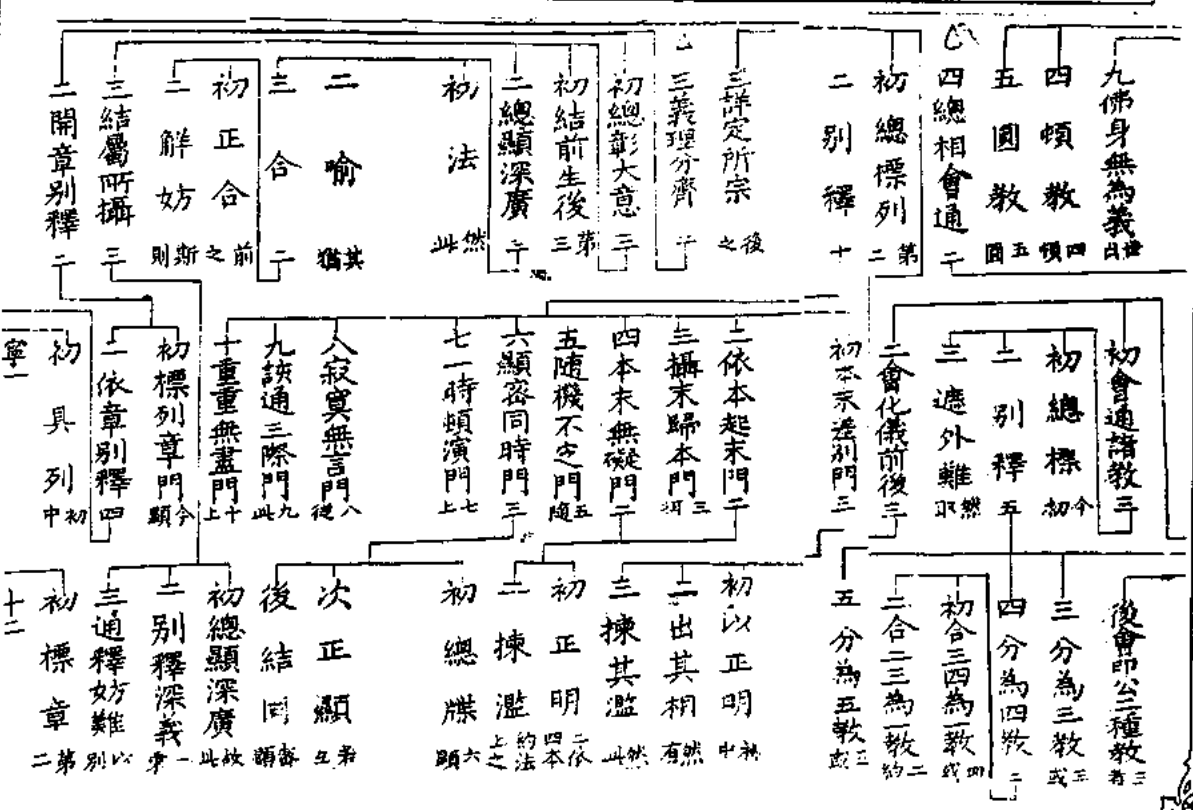 九佛身無為義
四頓教 四頓
五圓教 五圓
四總相會通 二
初總標列 第二
二別釋 十
三詳定所宗 後之
三義理分齊 二
初總彰大意 三
初結前生後 第三
二總顯深廣 二
初法 然此
二喻 其猶
三合 二
初正合 前之
二解妨 斯則
三結屬所攝 三
二開章別釋 二
初會通諸教 三
初總標 今初
二別釋 五
三遮外難 然
二會化儀前後 三
初本末差別門 三
二依本起末門 二
三攝末歸本門 三
四本末無礙門 二
五隨機不定門 五隨
六顯密同時門 三
七一時頓演門 七上
八寂寞無言門 八從
九該通三際門 九此
十重重無盡門 十上
初標列章門 今顯
二依章別釋 四
初具列 初中
寧一
後會印公三種教 三
三分為三教 三或
四分為四教 二
初合三四為一教 四或
二合二三為一教 二約
五分為五教 三或
初以正明 初中
二出其相 然有
三揀其濫 然此
初正明 二依四本
二揀濫 約法上之
初總牒 六顯
次正顯
後結同
初總顯深廣 故此
二別釋深義 一
三通釋妨難 以別
初標章 第二
十二